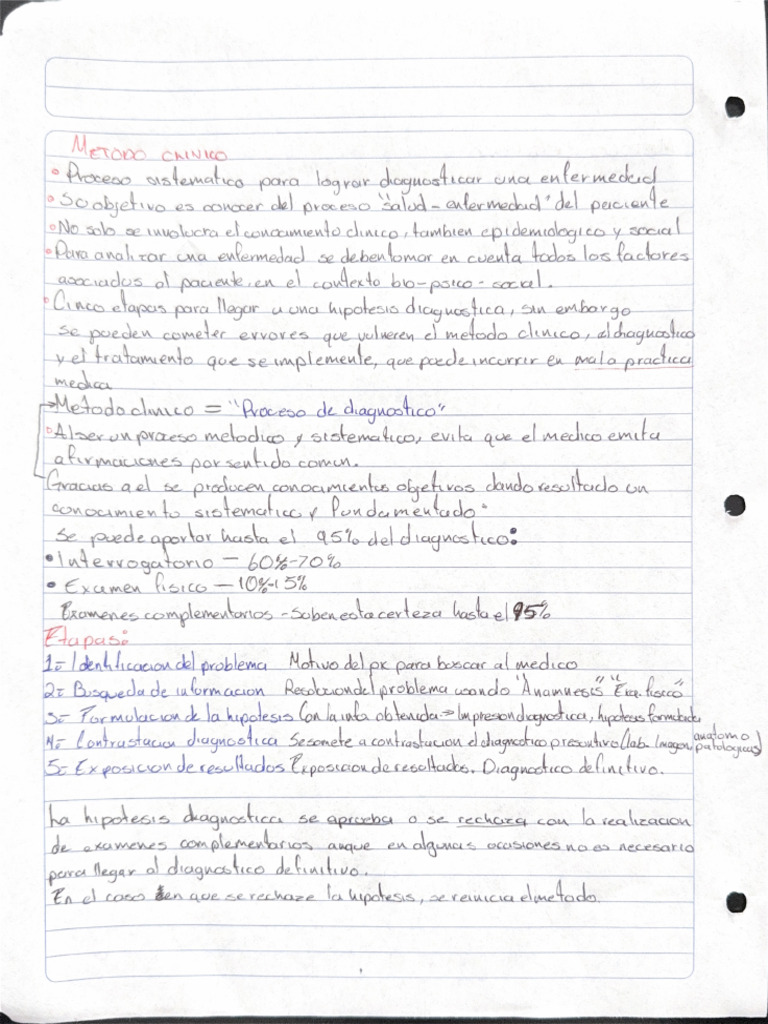 METODO CLINICO
• Proceso sistematico para lograr diagnosticar una enfermedad
• Su objetivo es conocer del proceso "salud-enfermedad" del paciente
• No solo se involucra el conocimiento clinico, tambien epidemiologico y social
• Para analizar una enfermedad se deben tomar en cuenta todos los factores
asociados al paciente, en el contexto bio-psico-social.
• Cinco etapas para llegar a una hipotesis diagnostica, sin embargo
se pueden cometer errores que vulneren el metodo clinico, el diagnostico
y el tratamiento que se implemente, que puede incurrir en mala practica
medica
→Metodo clinico = "Proceso de diagnostico"
• Al ser un proceso metodico y sistematico, evita que el medico emita
afirmaciones por sentido comun.
Gracias a el se producen conocimientos objetivos dando resultado un
conocimiento sistematico y fundamentado.
Se puede aportar hasta el 95% del diagnostico:
• Interrogatorio – 60%-70%
• Examen fisico – 10%-15%
Examenes complementarios - Suben esta certeza hasta el 95%
Etapas:
1- Identificacion del problema Motivo del px para buscar al medico
2- Busqueda de informacion Resolucion del problema usando "Anamnesis" "Exp. fisico"
3- Formulacion de la hipotesis Con la info obtenida → Impresion diagnostica, hipotesis formulada
4- Contrastacion diagnostica Se somete a contrastacion el diagnostico presuntivo (lab. Imagen, anatomo patologicas)
5- Exposicion de resultados Exposicion de resultados. Diagnostico definitivo.
La hipotesis diagnostica se aprueba o se rechaza con la realizacion
de examenes complementarios aunque en algunas ocasiones no es necesario
para llegar al diagnostico definitivo.
En el caso en que se rechaze la hipotesis, se reinicia el metodo.